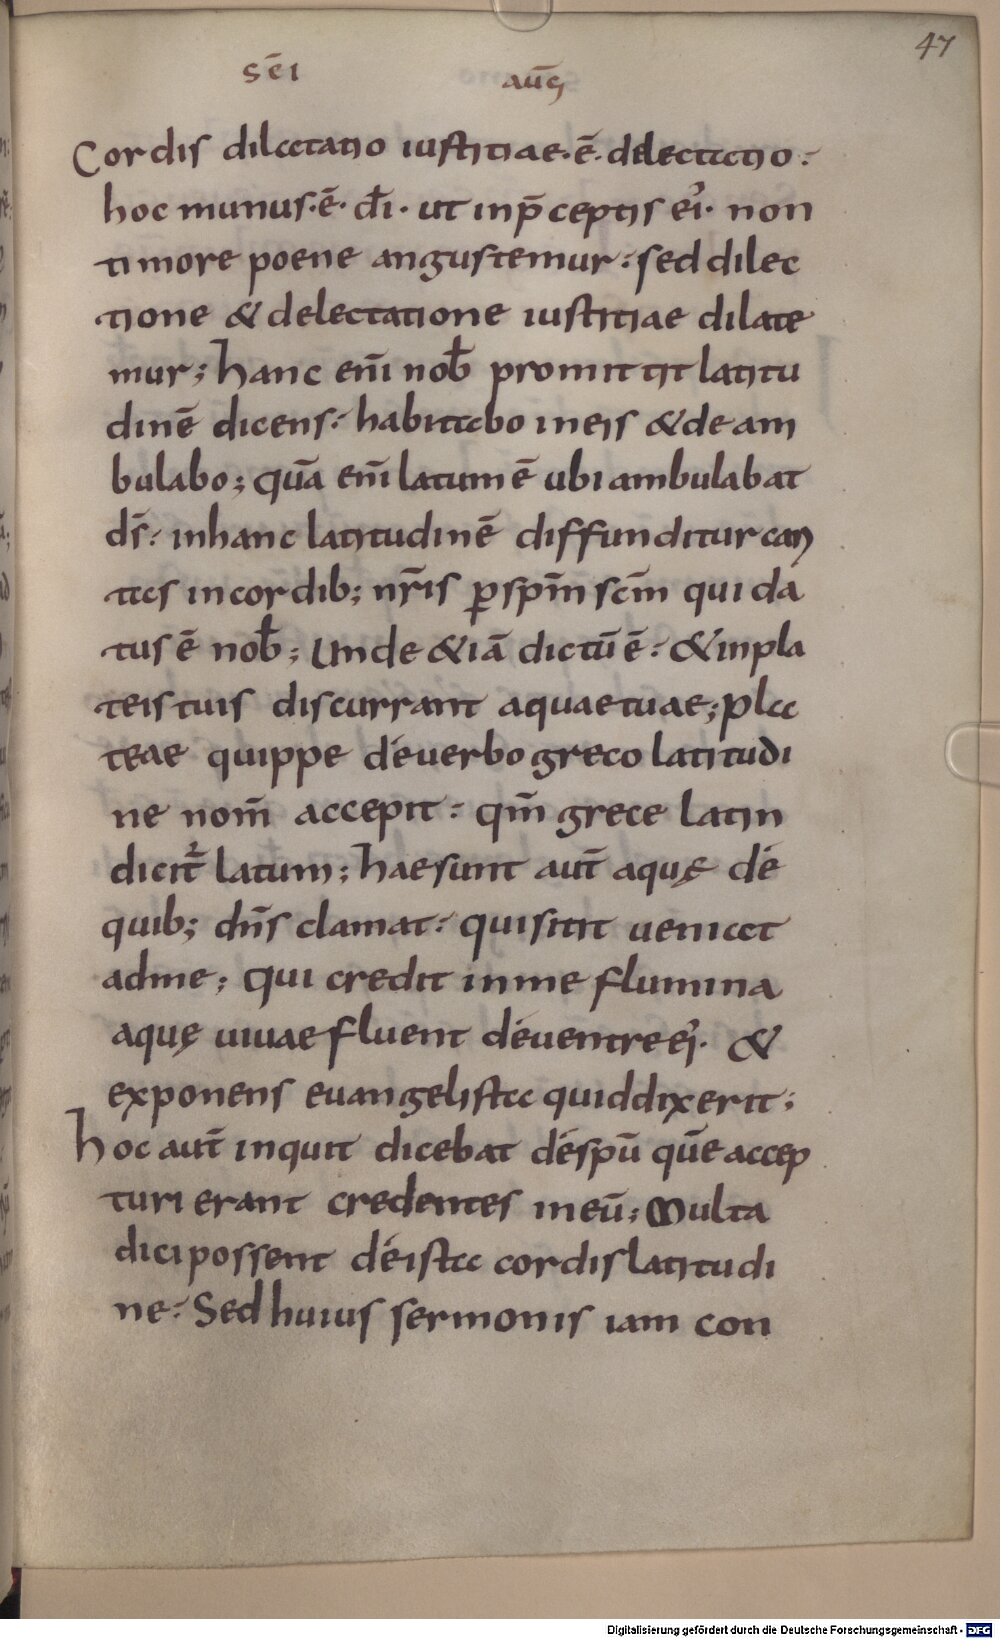 47
sc̄i auḡ
Cordis dilatatio iustitiae·ē· delectatio:
hoc munus·ē· dī· ut inp̄ceptis ei᾽· non
timore poene angustemur: sed dilec
tione & delectatione iustitiae dilate
mur; hanc eni̅ nob̄ promittit latitu
dinē dicens: habitabo in eis & deam
bulabo; quā eni̅ latum ē ubi ambulabat
ds̄: in hanc latitudinē diffunditur cari
tas in cordib; nr̄is ꝑ spm̄ scm̄ qui da
tus ē nob̄; Unde &iā dictū ē: & in pla
teis tuis discurrant aquae tuae; pla
teae quippe de uerbo greco latitudi
ne nom̄ accepit: qm̄ grece latin
dicit̄ latum; hae sunt aut̄ aquę de
quib; dn̄s clamat: qui sitit ueniat
ad me; qui credit in me flumina
aquę uiuae fluent de uentre ei᾽· &
exponens euangelista quid dixerit;
hoc aut̄ inquit dicebat de spū quē accep
turi erant credentes in eū; Multa
dici possent de ista cordis latitudi
ne: Sed huius sermonis iam con
Digitalisierung gefördert durch die Deutsche Forschungsgemeinschaft - DFG